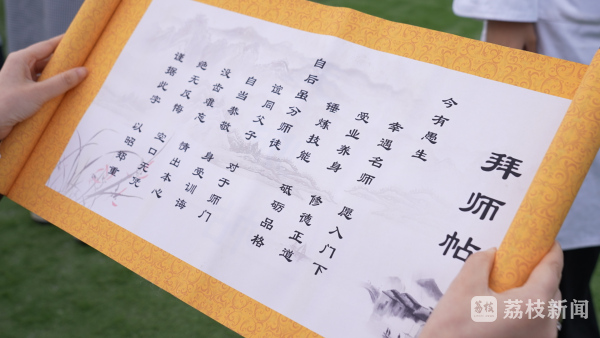 拜师帖
今有愚生
幸遇名师 愿入门下
受业养身 修德正道
锤炼技能 砥砺品格
自后虽分师徒
谊同父子 对于师门
自当恭敬 身受训诲
没齿难忘 情出本心
绝无反悔 空口无凭
谨据此字 以昭郑重
荔枝
荔枝新闻